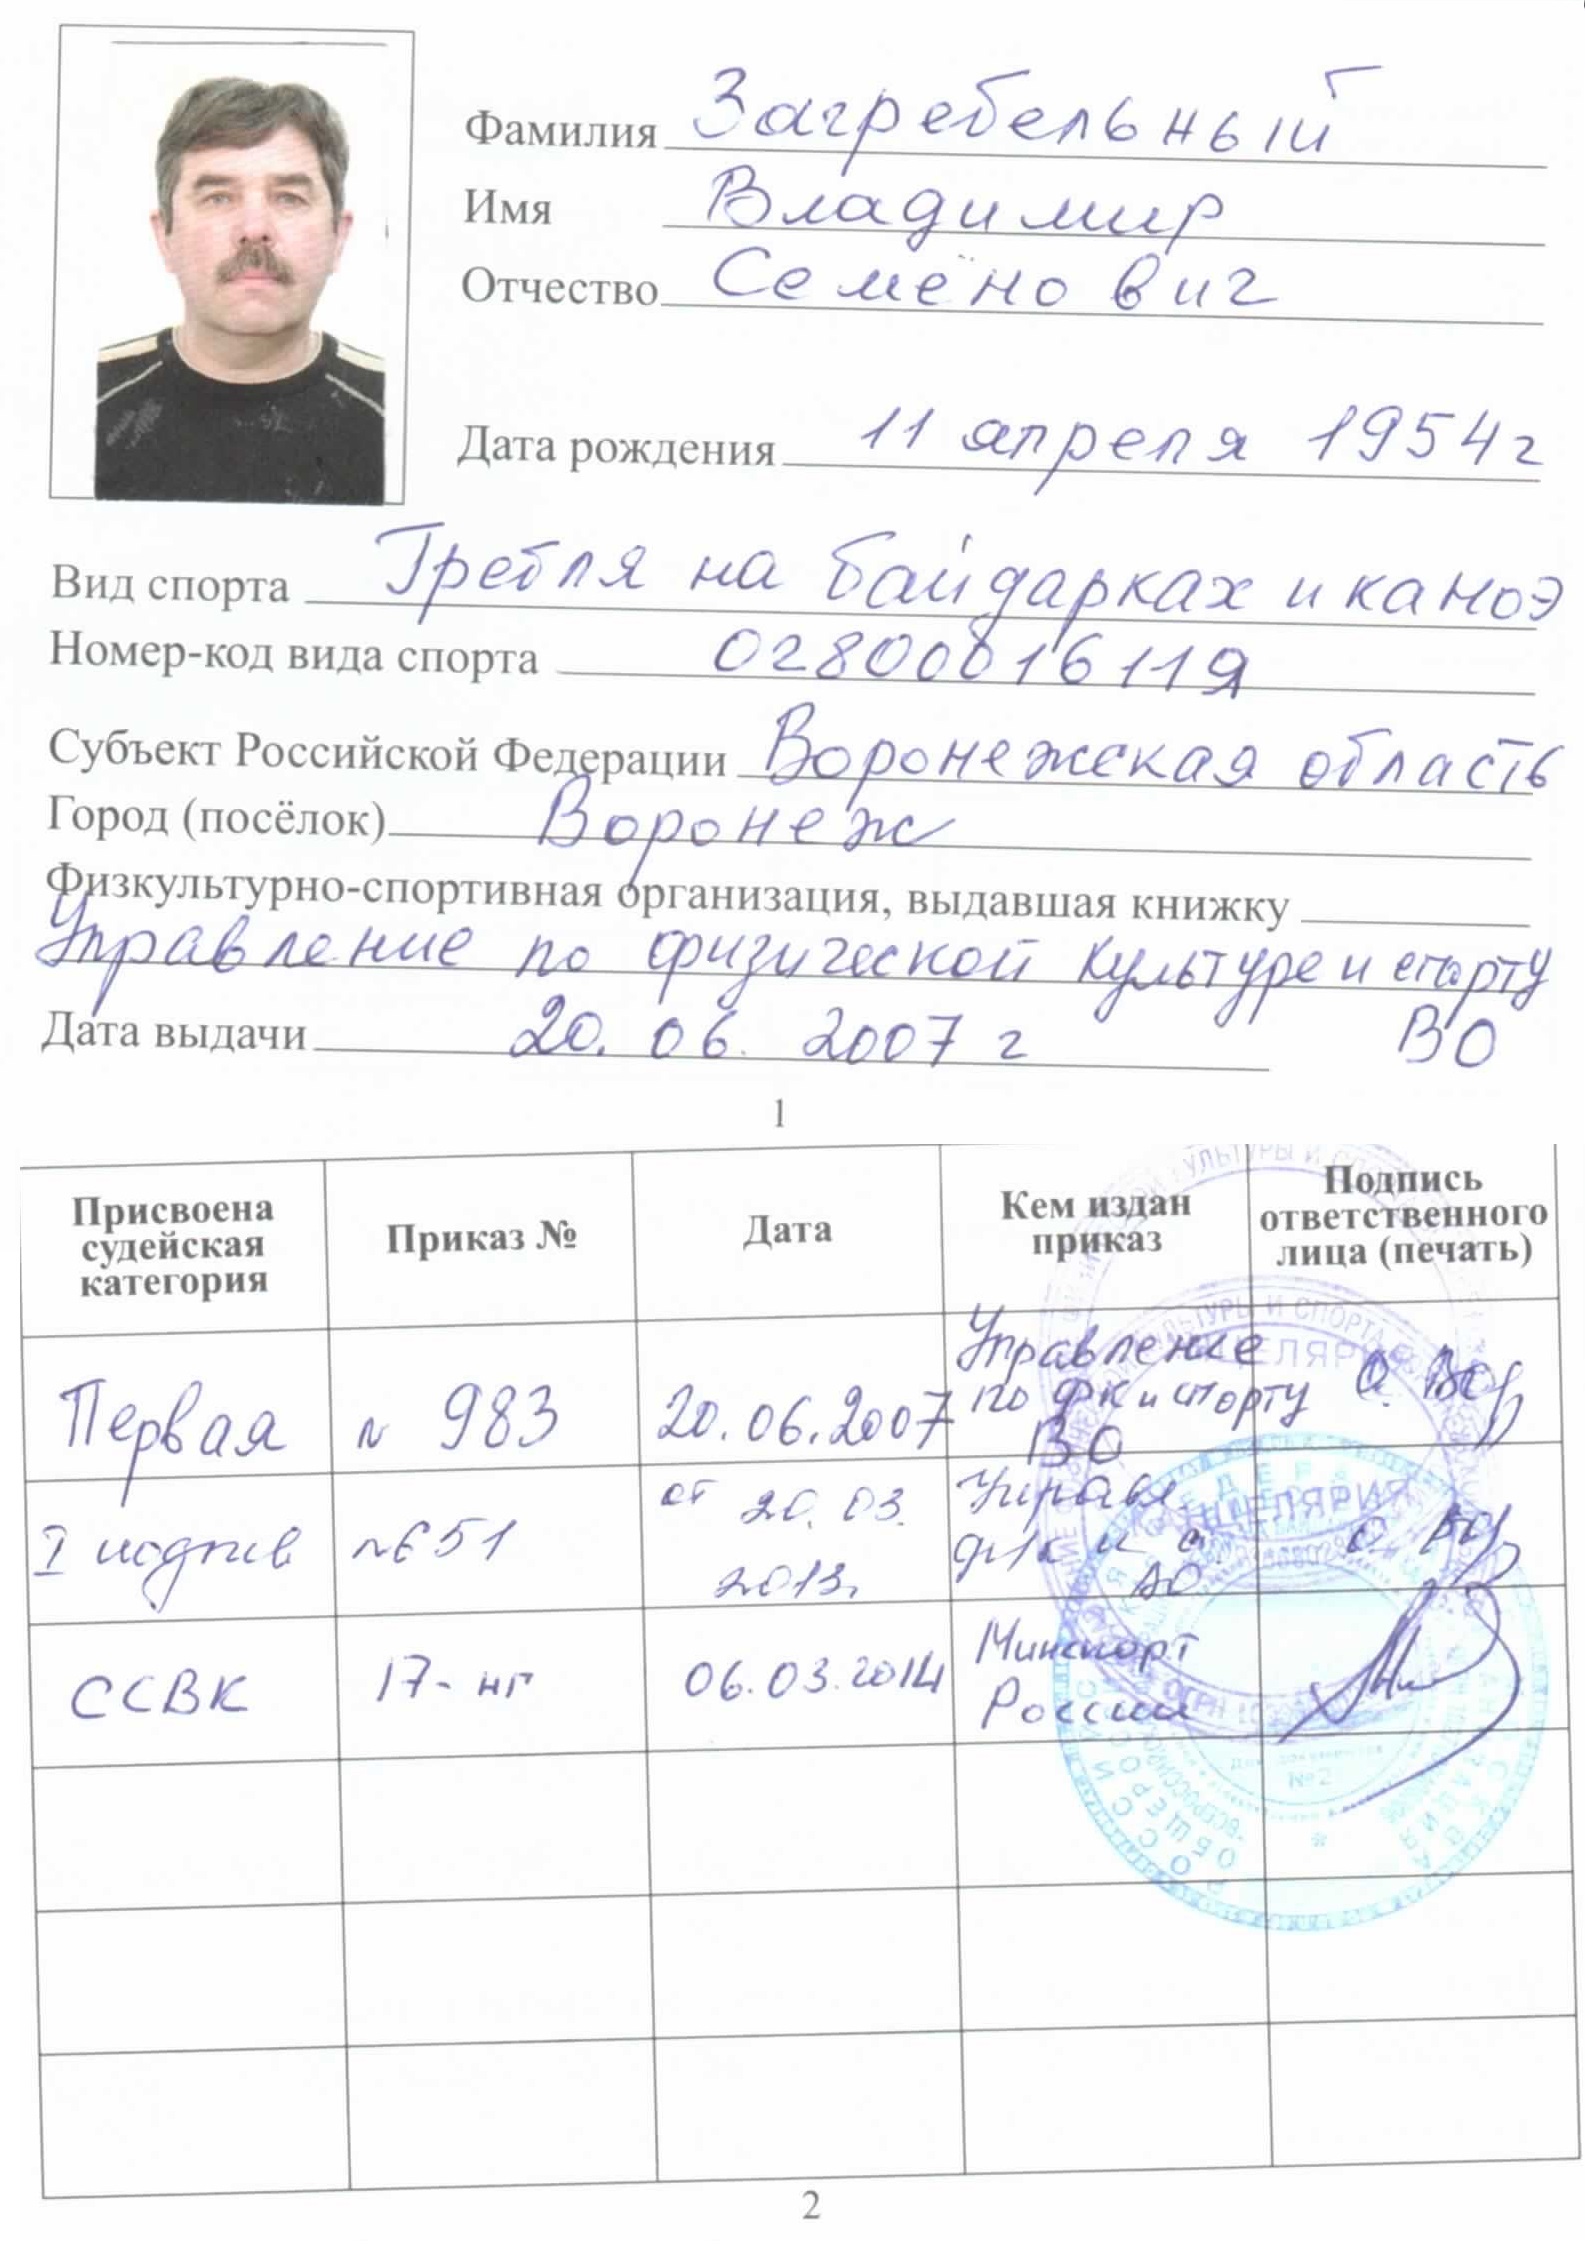 Фамилия Загребельный
Имя Владимир
Отчество Семёнович
Дата рождения 11 апреля 1954 г
Вид спорта Гребля на байдарках и каноэ
Номер-код вида спорта 0280001611Я
Субъект Российской Федерации Воронежская область
Город (посёлок) Воронеж
Физкультурно-спортивная организация, выдавшая книжку
Управление по физической культуре и спорту
Дата выдачи 20.06.2007 г ВО
1
Присвоена судейская категория Приказ № Дата Кем издан приказ Подпись ответственного лица (печать)
Первая № 983 20.06.2007 Управление по фк и спорту ВО
I подтв №651 от 20.03.2013г Управл фк и с ВО
ССВК 17-нг 06.03.2014 Минспорт России
КАНЦЕЛЯРИЯ
№2
2